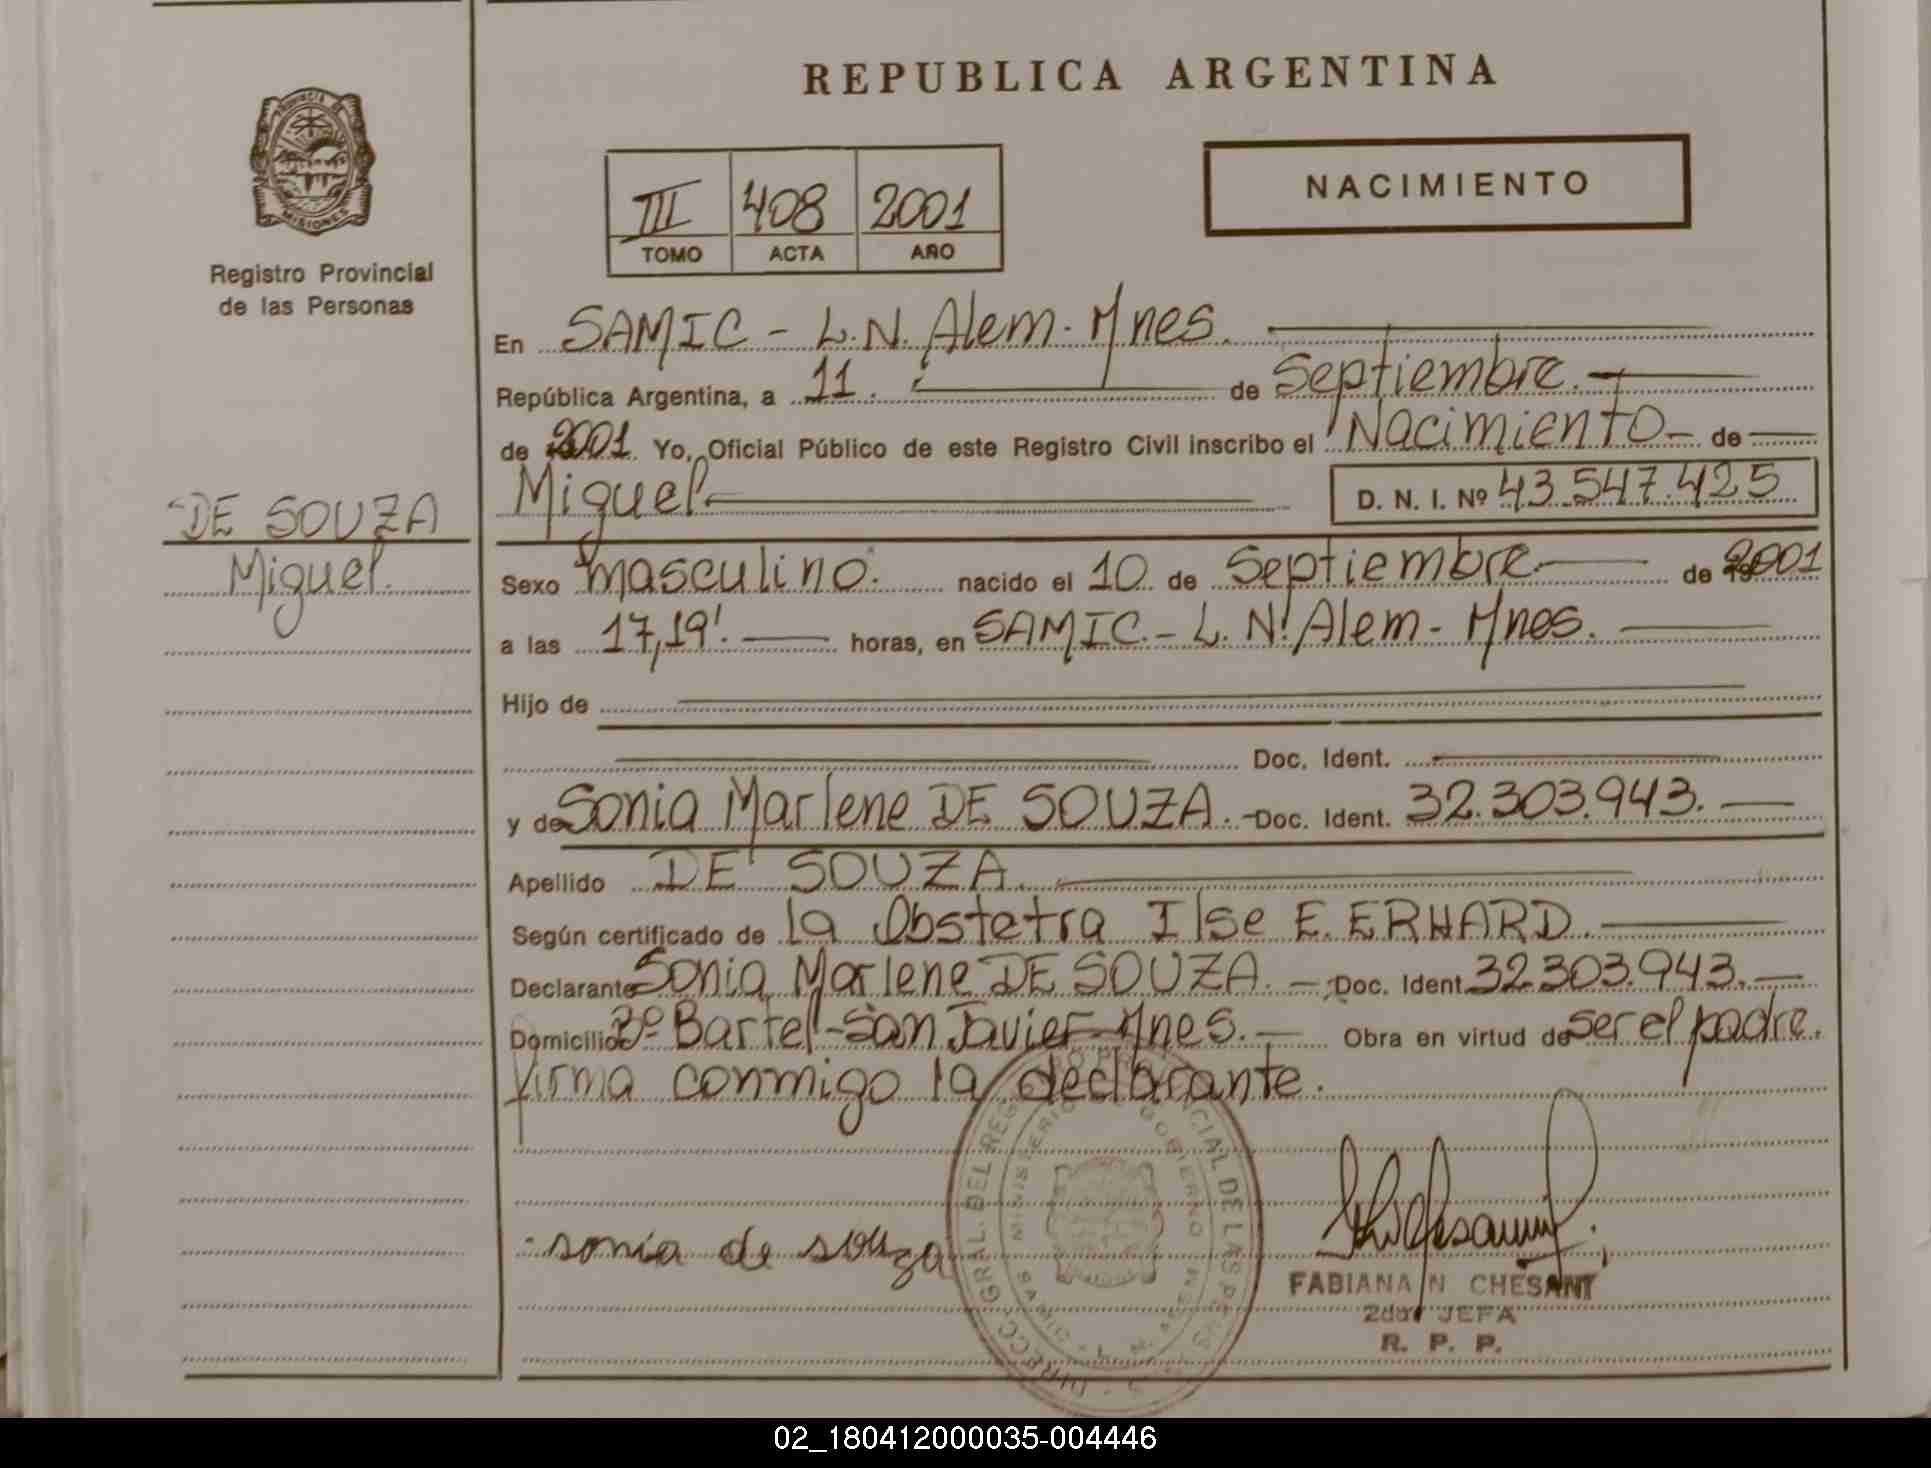 REPUBLICA ARGENTINA
PROVINCIA DE
MISIONES
Registro Provincial
de las Personas
III 408 2001
TOMO ACTA AÑO
NACIMIENTO
En SAMIC - L.N. Alem - Mnes.
República Argentina, a 11. de Septiembre.
de 2001. Yo, Oficial Público de este Registro Civil inscribo el Nacimiento de
Miguel D. N. I. Nº 43.547.425
DE SOUZA
Miguel.
Sexo masculino. nacido el 10 de Septiembre de 2001
a las 17,19'. horas, en SAMIC. - L. N. Alem - Mnes.
Hijo de
Doc. Ident.
y de Sonia Marlene DE SOUZA. - Doc. Ident. 32.303.943.
Apellido DE SOUZA.
Según certificado de la Obstetra Ilse E. ERHARD.
Declarante Sonia Marlene DE SOUZA. - Doc. Ident. 32.303.943.
Domicilio Bº Bartel - San Javier - Mnes. - Obra en virtud de ser el padre.
firma conmigo la declarante.
sonia de souza
FABIANA N CHESANI
2da JEFA
R. P. P.
02_180412000035-004446